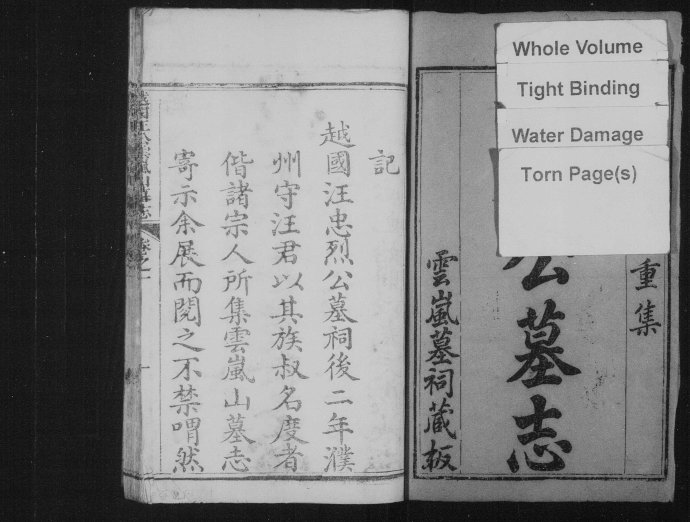 Whole Volume
Tight Binding
Water Damage
Torn Page(s)
重集
公墓志
雲嵐墓祠蔵板
記
越國汪忠烈公墓祠後二年濮
州守汪君以其族叔名度者
偕諸宗人所集雲嵐山墓志
寄示余展而閱之不禁喟然